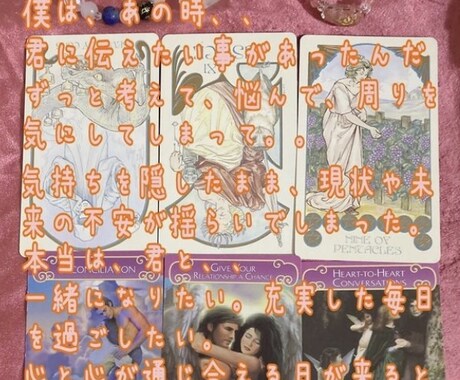 僕は、あの時、、
君に伝えたい事があったんだ
ずっと考えて、悩んで、周りを
気にしてしまって。。
気持ちを隠したまま、現状や未
来の不安が揺らいでしまった。
本当は、君と、
一緒になりたい。充実した毎日
を過ごしたい。
心と心が通じ合える日が来ると
NINE OF PENTACLES
GIVE YOUR RELATIONSHIP A CHANCE
HEART-TO-HEART CONVERSATIONS